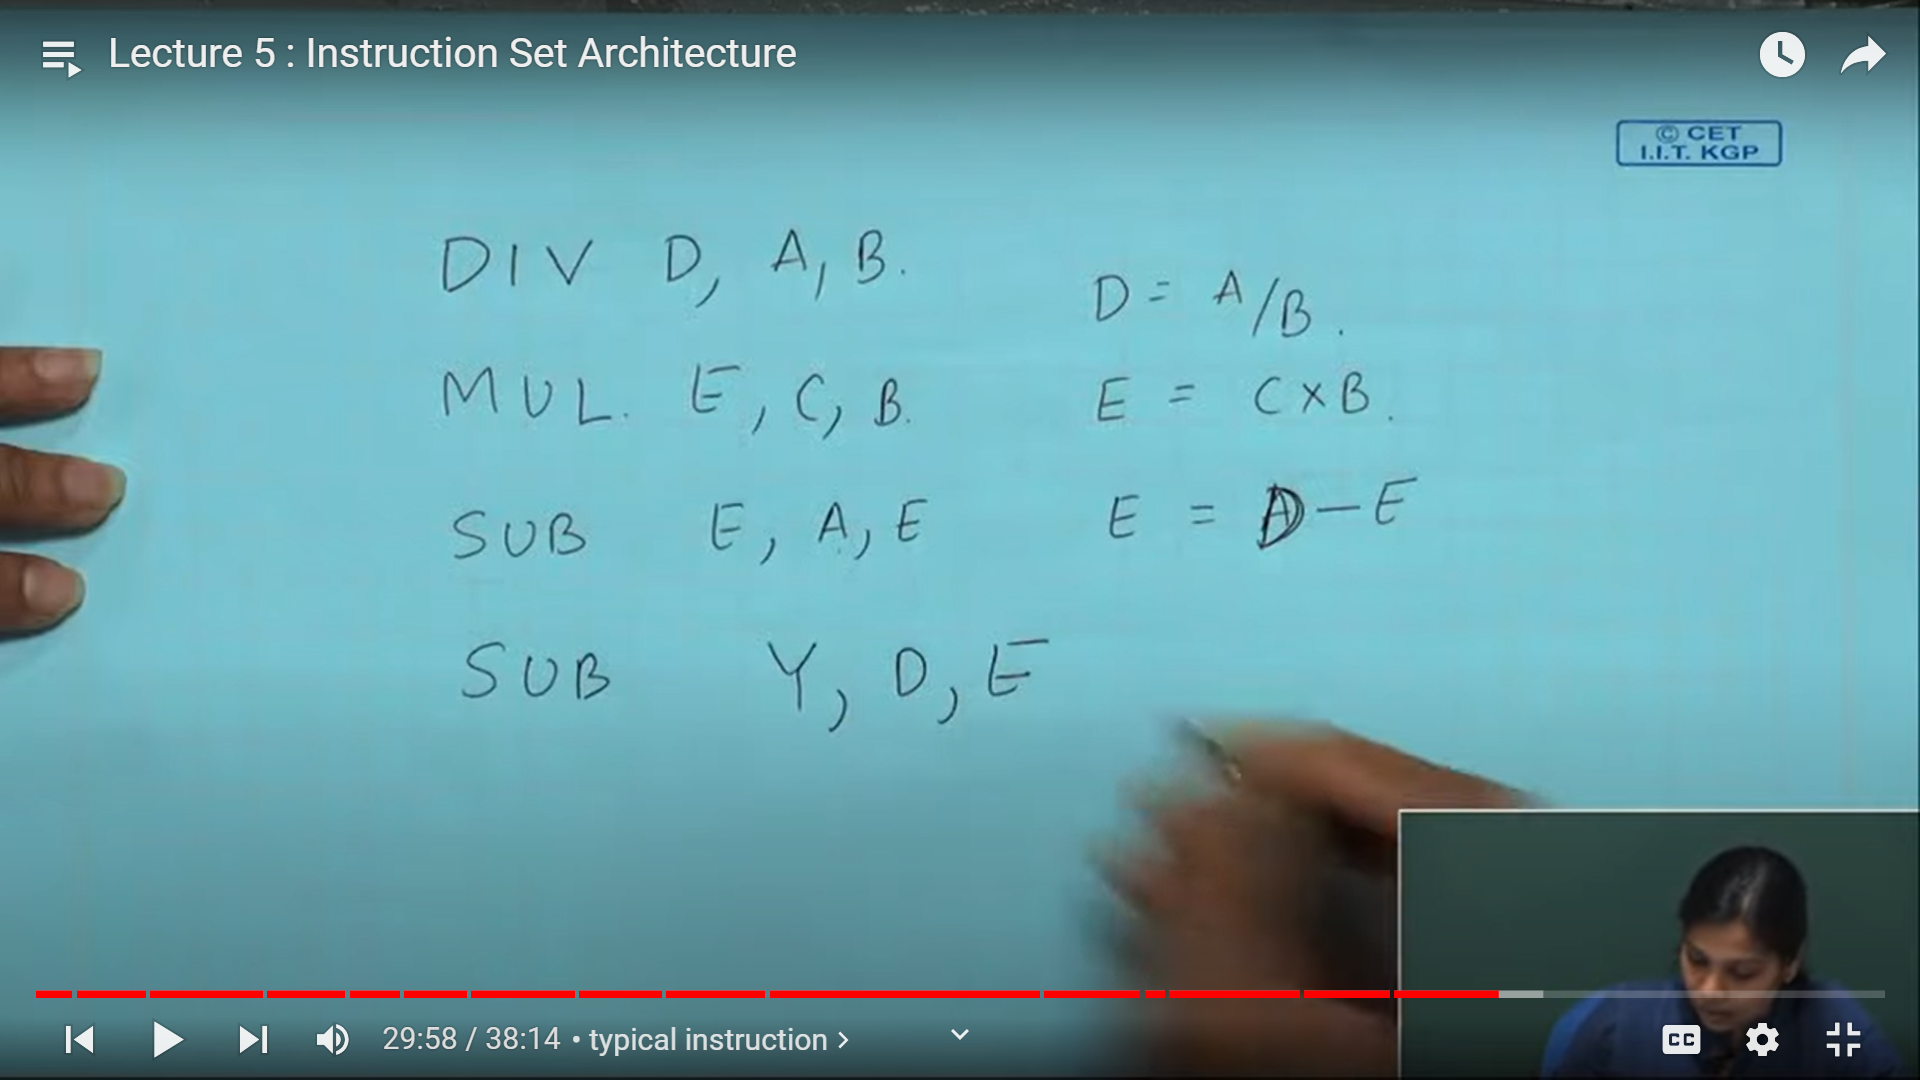 Lecture 5 : Instruction Set Architecture
© CET
I.I.T. KGP
DIV D, A, B.
D = A/B.
MUL. E, C, B.
E = C x B.
SUB E, A, E
E = D - E
SUB Y, D, E
29:58 / 38:14 • typical instruction >
CC